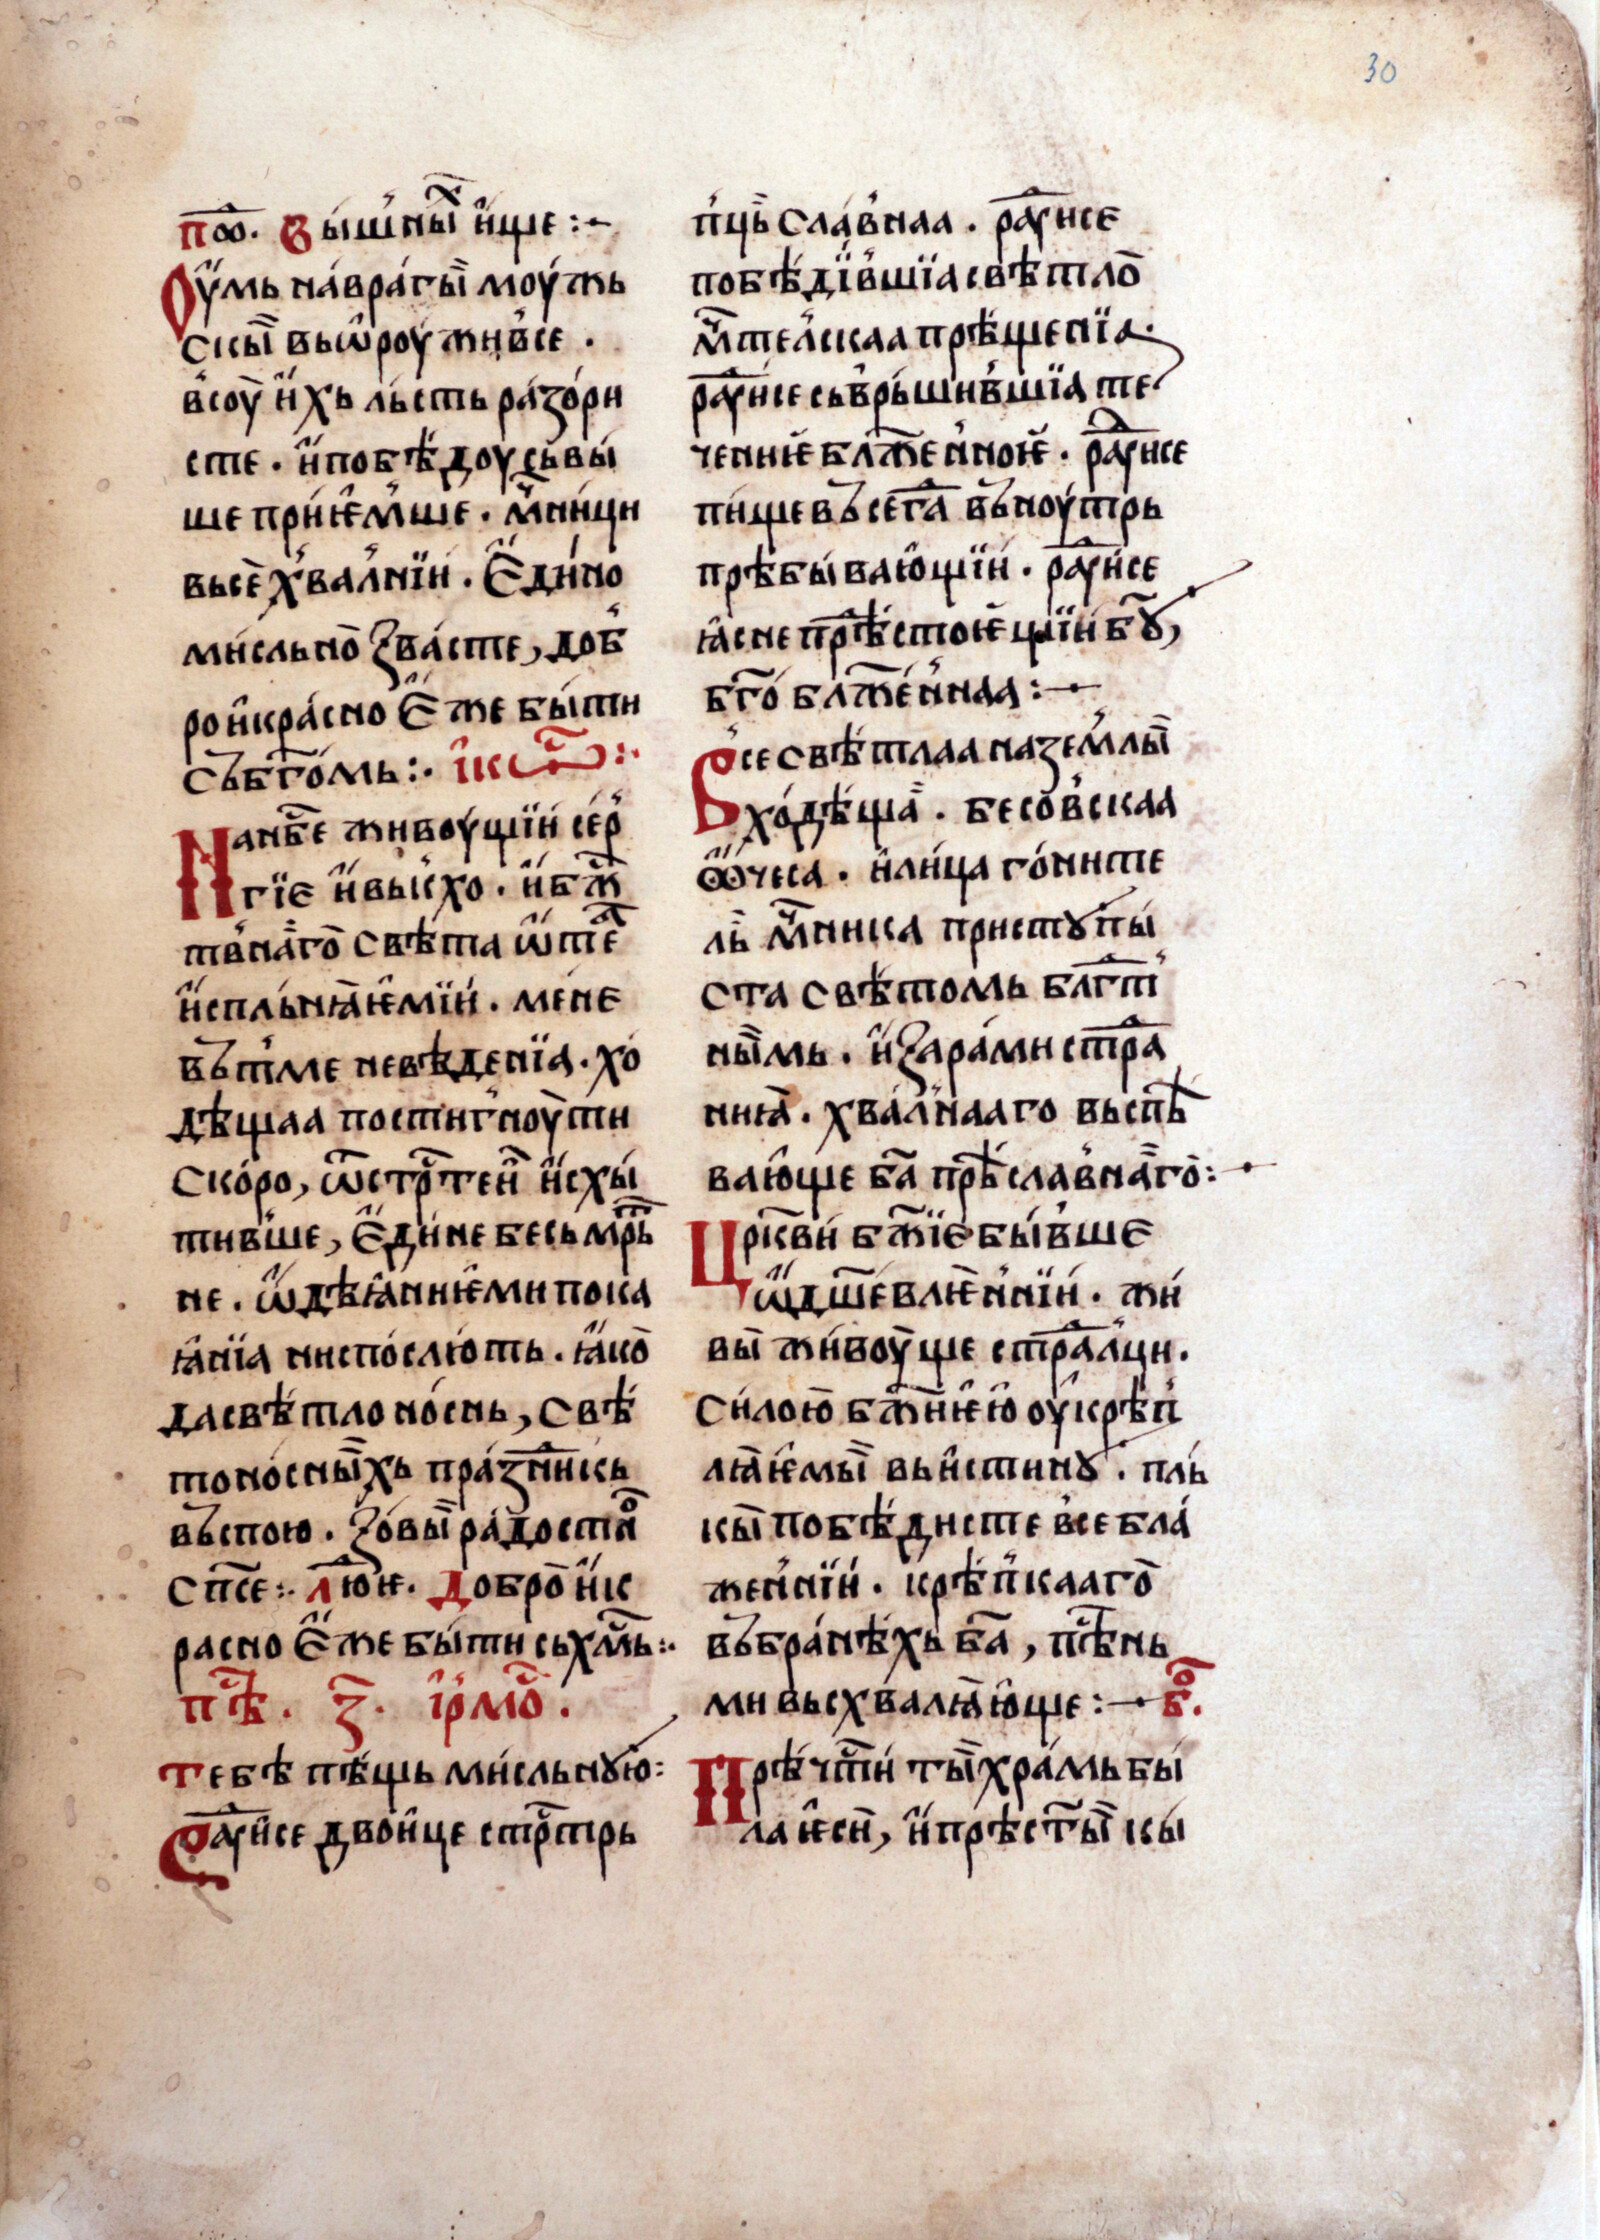 30
поⷣ. Вы́шны́иⷯ и҆ще :~
Оу҆мь на́враги̑ моу́жь
скы̑ въѡ҆роужи́в҆се .
в҆соу̀ и҆́хь льсть разо́ри
сте . и҆побѣ́доу съвы́
ше при́ѥ҆м҆ше . мⷱ҇ни́ци
въсѐ х҆вал҆нїи . Є҆ди́но
ми́сльно̀ зва́сте, доб҆
ро и҆кра́сно Є҆же бы́ти
съб҃го́мь :· і҆коⷭ҇ :·
На нб҃се живоу́щїи се́р҆
гїє и҆вы́кхо . и҆бж҃
тв҆на̑го̀ свѣ́та ѿтеⷣ
и҆спль́нꙗѥ҆мїи . ме́не
въ т҆ме невѣ́денїа . хо́
дѣщаа постиг҆ноу̀ти
ско́ро, ѿстрⷭ҇те́и и҆схы́
тив҆ше, Є҆ди́не бесьмрⷮь
не . ѡ҆дѣꙗ҆ниѥ҆ми пока
ꙗ҆нїа ниспо́слють . ꙗ҆ко̀
да свѣ́тло но́снь, свѣ́
тоно́сны̑хь пра́зⷣникь
въспою . зо́вы̑ ра́достїⷽ҇
сп҃се :· лю҆ѥ . Добро̀ и҆к
расно Є҆же бы́ти сьхмⷭ҇ь :·
пѣⷭ҇ . з҃ . і҆рмоⷭ҇ .
Тебѣ пѣ́щь ми́сльнꙋю :
Раⷣуи́се дво́и҆це стрⷭ҇трь
п҆ць̀ сла́в҆наа . раⷣуисе
побѣ́дїв҆шїа свѣ́тло̀
мⷱ҇тел҆скаа прѣ́щенїа .
раⷣуи́се съв҆рь́шив҆шїа те
чениѥ блж҃ен҆ноѥ . раⷣуисе
пи́ще въсегⷣа въноу́трь
прѣбы́ваю҆щїи . раⷣуи́се
ꙗ҆сне прѣⷣстоѥщїи б҃ꙋ,
б҃го́ блж҃е́н҆наа :~
Все свѣ́тлаа на зем҆лы̑
хо́дѣща̀ . бесо́в҆скаа
ꙮ҆чеса . и҆ли́ца го́ните
ль̀ мⷱ҇ника приступ́ы
ста свѣ́томь блгⷣт҆
ны̑мь . и҆зара́ми страⷣ
ниꙗ . хвал҆наа го въспѣ̀
ваю҆ще б҃а прѣсла́в҆на̑го̀ :~
Црⷦ҇ви́ бж҃їє бы́в҆ше
ѡ҆дш҃е́влѥн҆нїи . жи́
вы̑ жи́воу̀ще страⷣл҆ци .
си́лою̀ бжⷭ҇ниѥ҆ю҆ оу҆крѣп҆
лꙗѥ҆мы̑ въи҆стинꙋ . пль́
кы̑ побѣ́дисте в҆се бла́
жен҆нїи . крѣ́п҆каа го̀
въбра́нѣхь б҃а, пѣⷭ҇нь
ми въсхвалꙗю҆ще :~ боⷢ҇.
Прѣчⷭ҇ти́ ты̑ хра́мь бы́
ла ѥ҆си̑, и҆прѣст҃ы̑ кы́